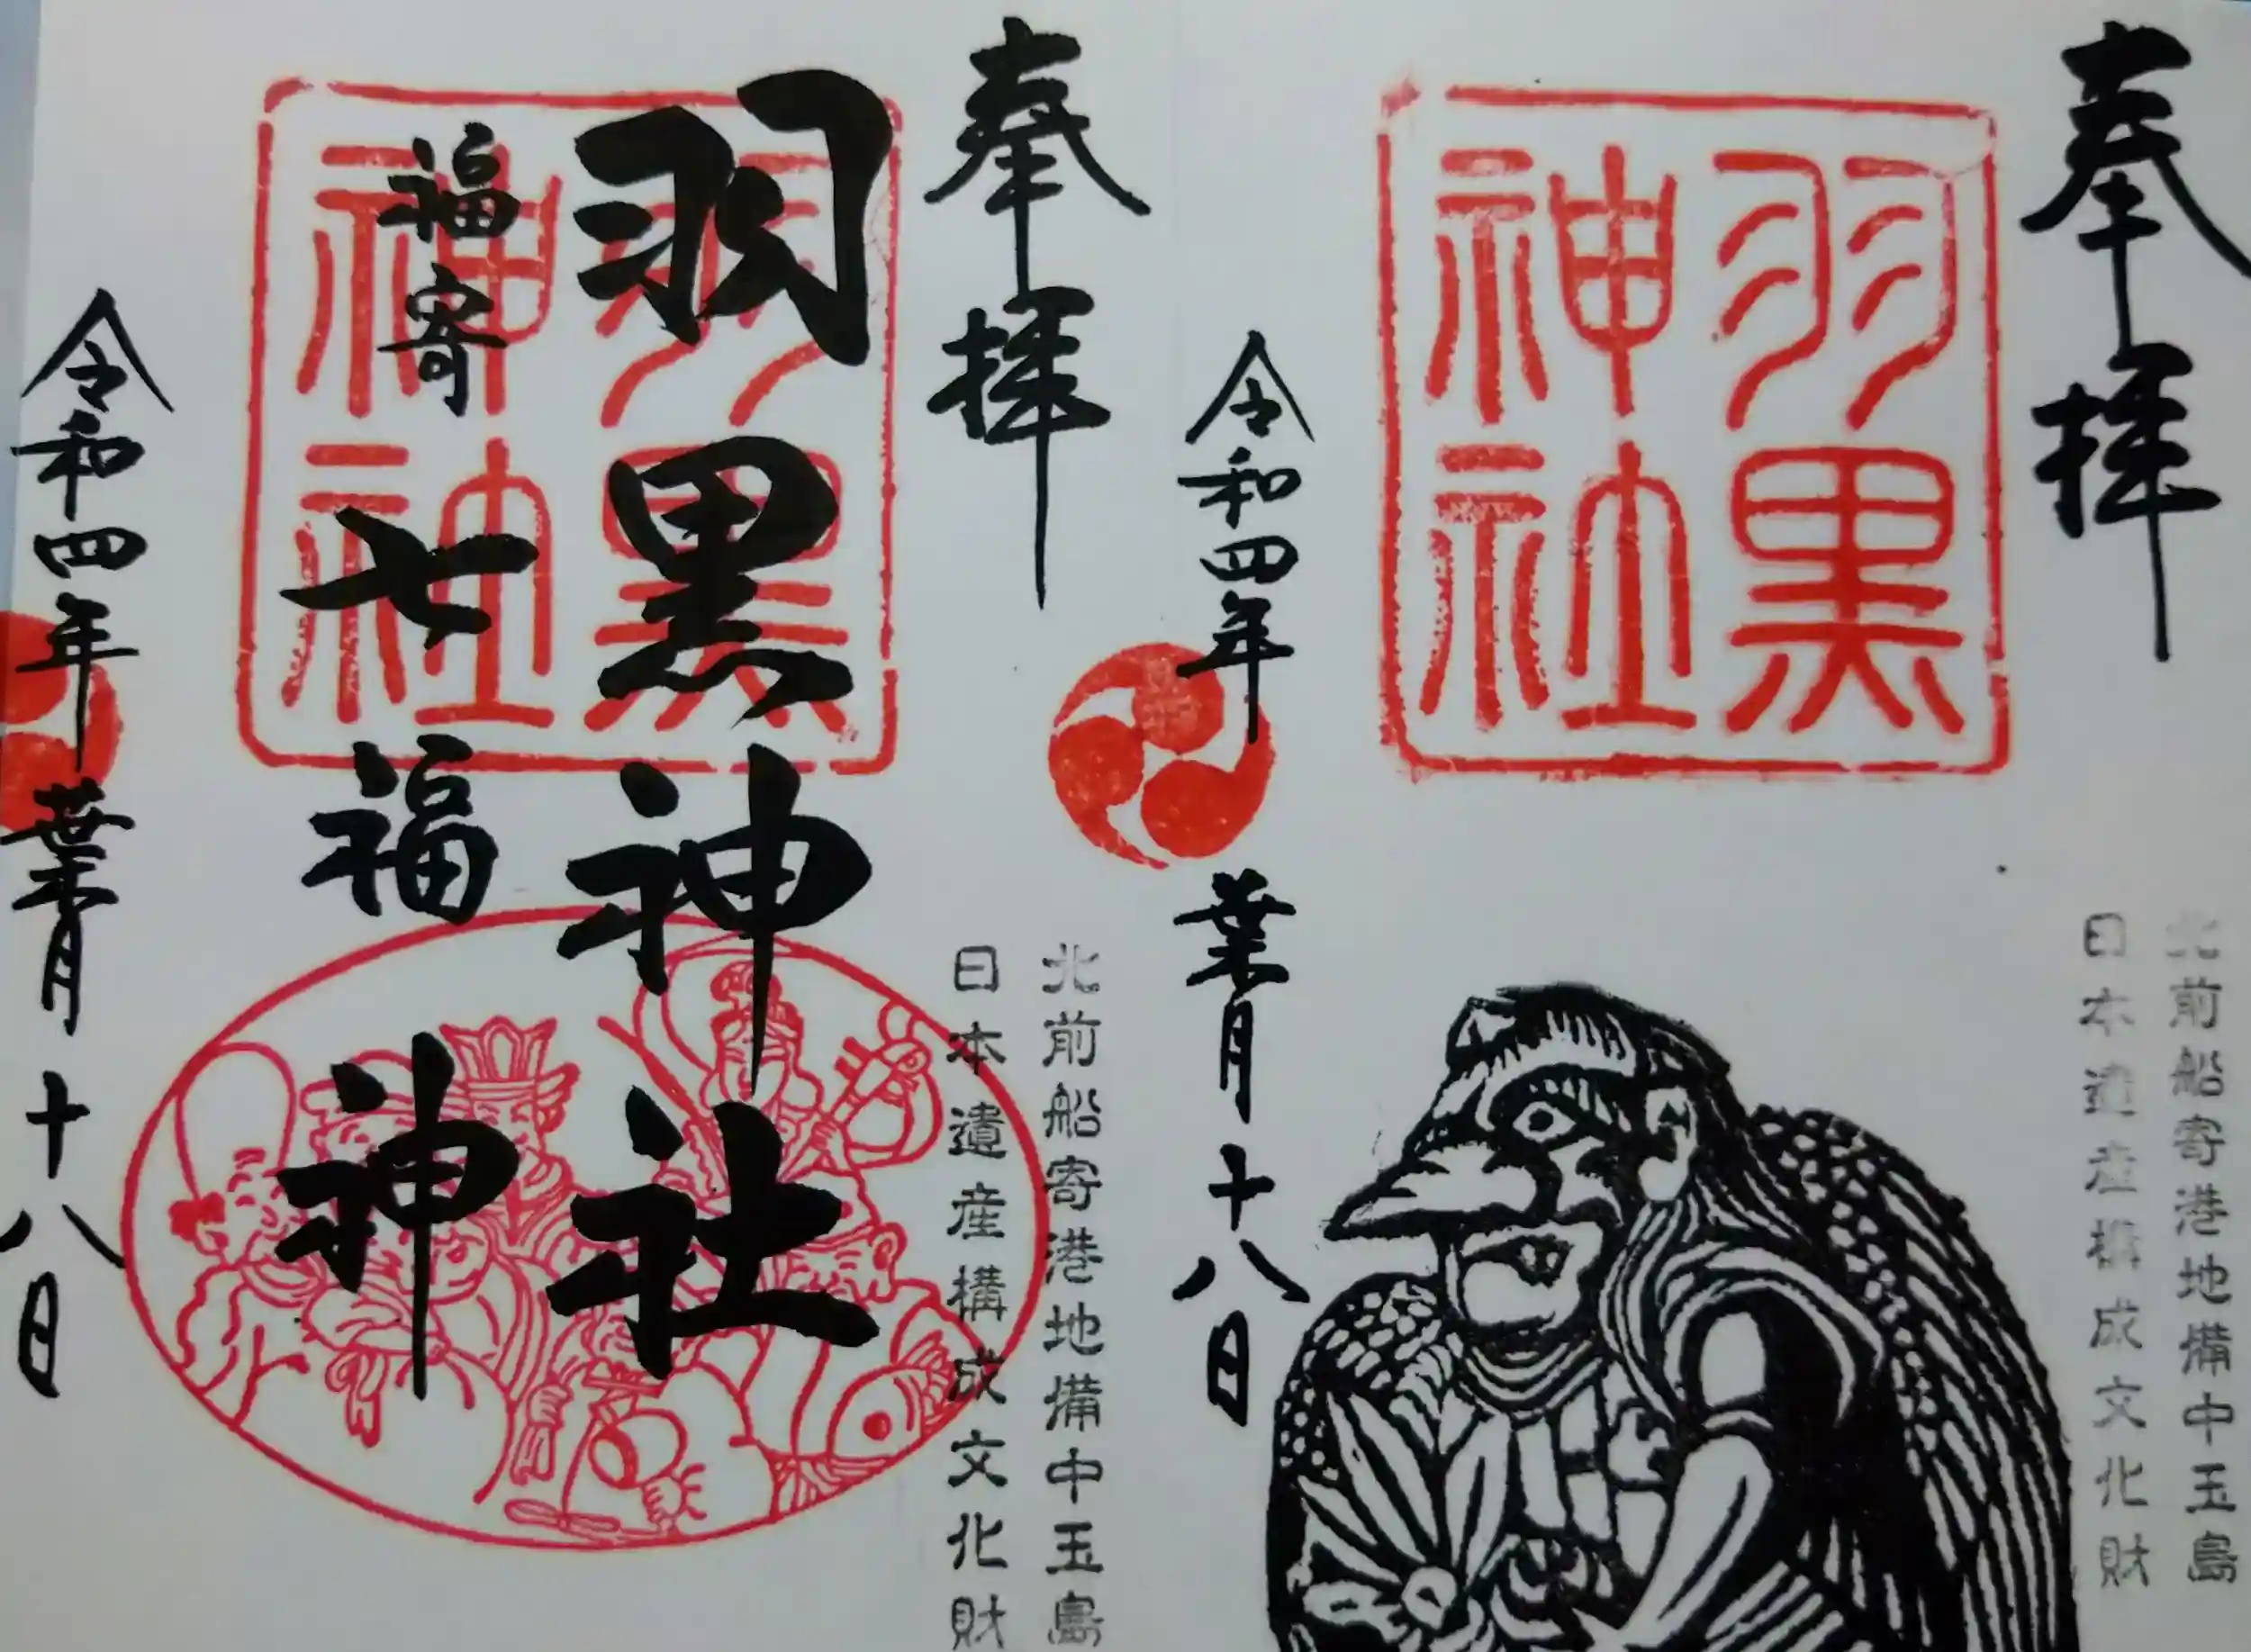 奉拝
羽黒
神社
北前船寄港地備中玉島
日本遺産構成文化財
令和四年葉月十八日
奉拝
北前船寄港地備中玉島
日本遺産構成文化財
羽黒神社
羽黒
神社
福寄
七福神
令和四年葉月十八日